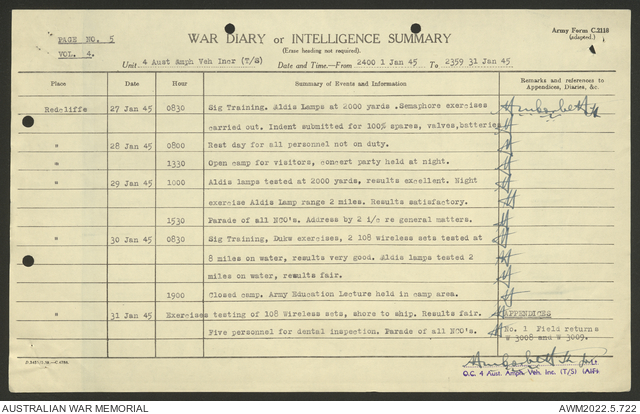 PAGE NO. 5
VOL. 4.
WAR DIARY or INTELLIGENCE SUMMARY
(Erase heading not required).
Army Form C.2118
(adapted.)
Unit. 4 Aust Amph Veh Incr (T/S) Date and Time.—From 2400 1 Jan 45 To 2359 31 Jan 45
Place Date Hour Summary of Events and Information Remarks and references to Appendices, Diaries, &c.
Redcliffe 27 Jan 45 0830 Sig Training. Aldis Lamps at 2000 yards .Semaphore exercises
carried out. Indent submitted for 100% spares, valves,batteries
" 28 Jan 45 0800 Rest day for all personnel not on duty.
1330 Open camp for visitors, concert party held at night.
" 29 Jan 45 1000 Aldis lamps tested at 2000 yards, results excellent. Night
exercise Aldis Lamp range 2 miles. Results satisfactory.
1530 Parade of all NCO's. Address by 2 i/c re general matters.
" 30 Jan 45 0830 Sig Training, Dukw exercises, 2 108 wireless sets tested at
8 miles on water, results very good. Aldis lamps tested 2
miles on water, results fair.
1900 Closed camp. Army Education Lecture held in camp area.
" 31 Jan 45 Exercises testing of 108 Wireless sets, shore to ship. Results fair.
APPENDICES
Five personnel for dental inspection. Parade of all NCO's.
No. 1 Field returns
W 3008 and W 3009.
O.C. 4 Aust. Amph. Veh. Inc. (T/S) (AIF).
AUSTRALIAN WAR MEMORIAL
AWM2022.5.722